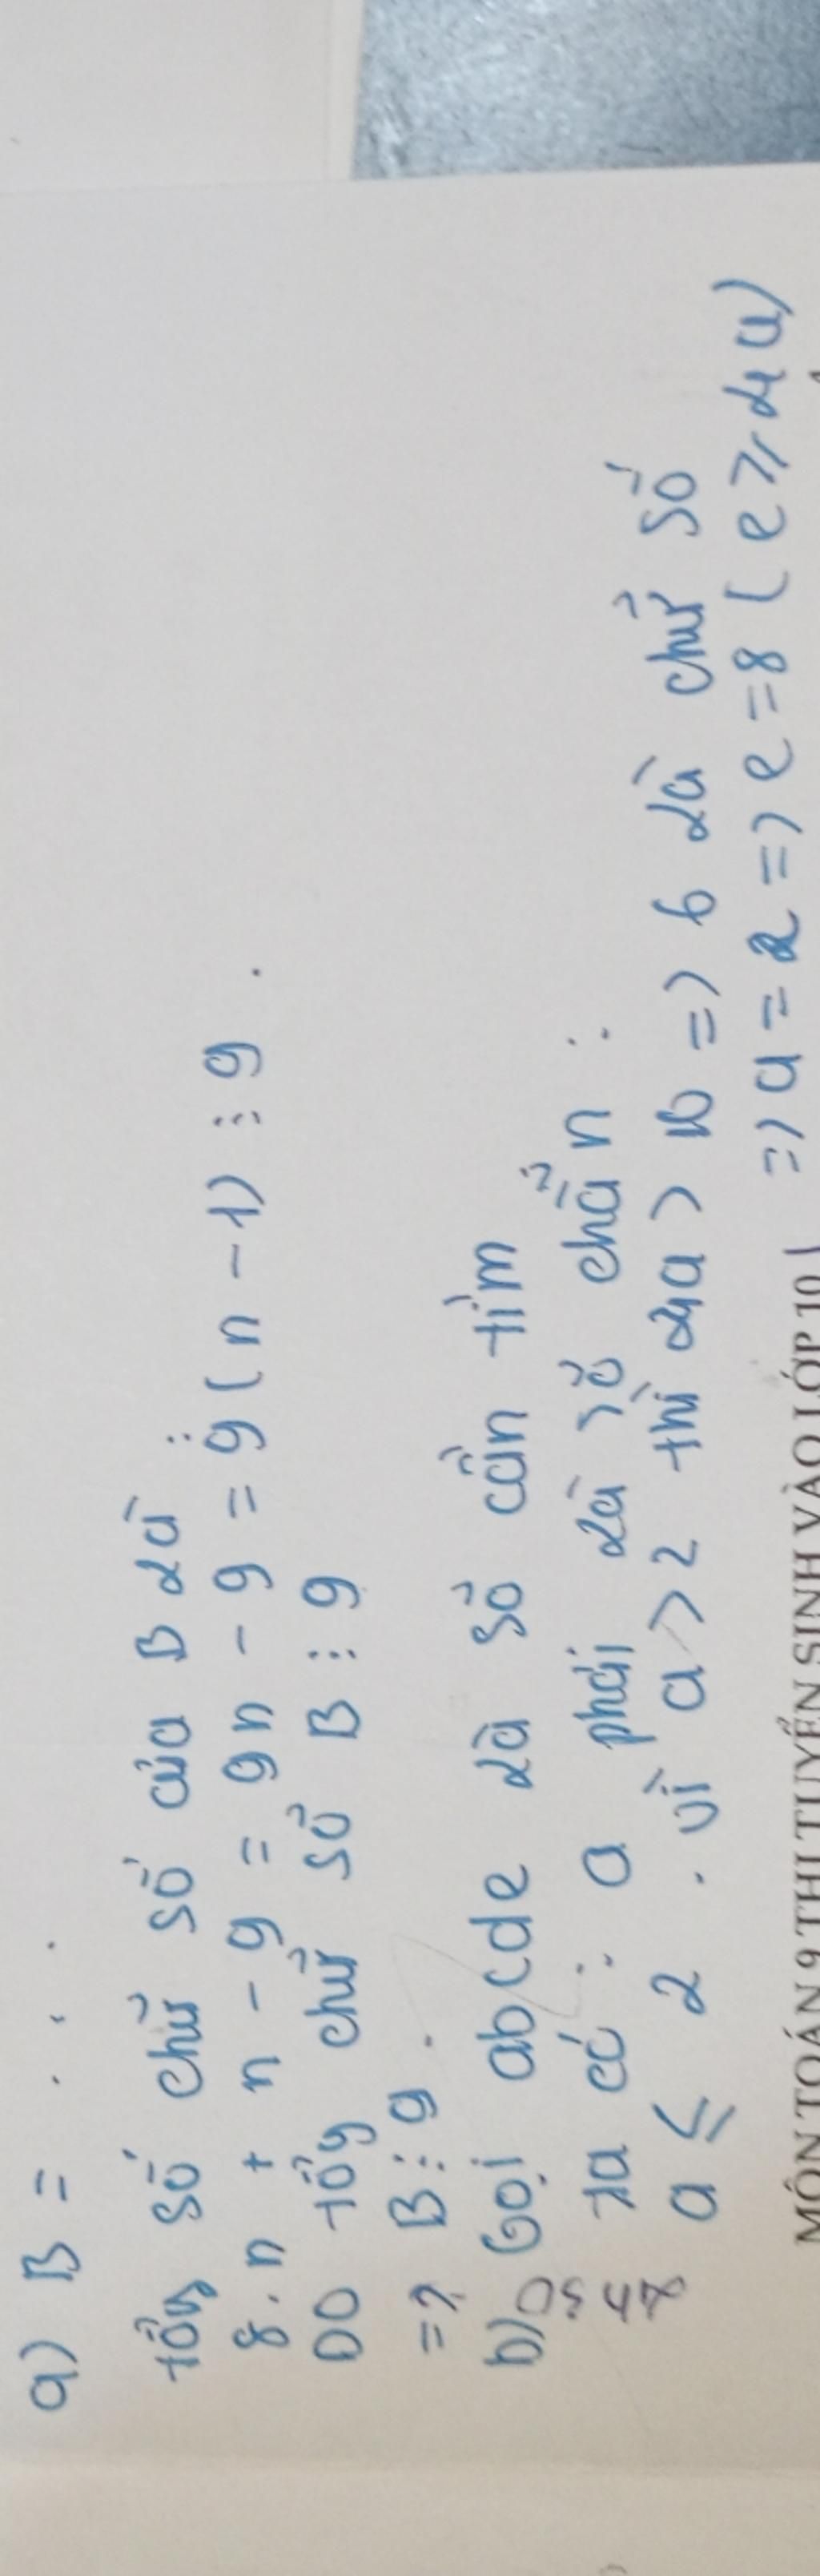 a) B = . . .
tổng số chữ số của B là :
8.n + n - 9 = 9n - 9 = 9(n - 1) ⋮ 9 .
Do tổng chữ số B ⋮ 9
=> B ⋮ 9 .
b) Gọi abcde là số cần tìm
Ta có : a phải là số chẵn :
a ≤ 2 . vì a > 2 thì 4a > 10 => b là chữ số
=> a = 2 => e = 8 ( e ≥ 4a)
MÔN TOÁN 9 THI TUYỂN SINH VÀO LỚP 10